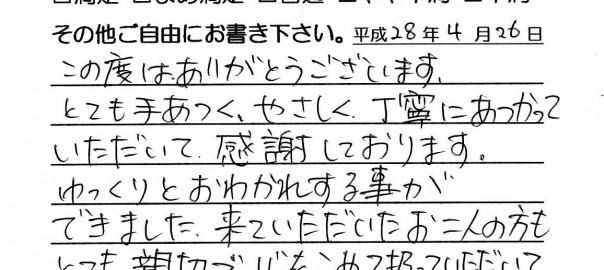 その他ご自由にお書き下さい。平成28年4月26日
この度はありがとうございます。
とても手あつく、やさしく、丁寧にあつかって
いただいて、感謝しております。
ゆっくりとおわかれする事が
できました。来ていただいたお二人の方も
とても親切で、心をこめて扱っていただいて